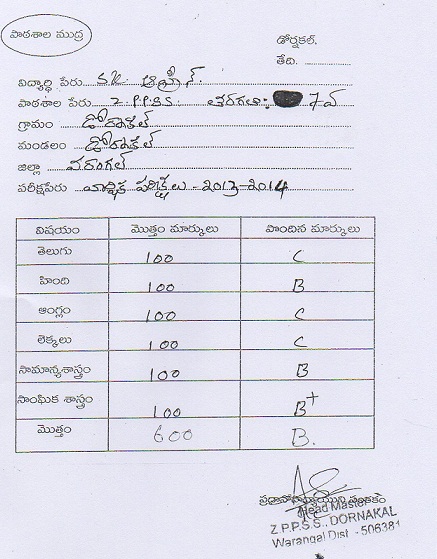 పాఠశాల ముద్ర
డోర్నకల్.
తేది. ..............
విద్యార్ధి పేరు S.K. ఆఫ్రీన్.
పాఠశాల పేరు Z.P.P.S.S. తరగతి: 7వ
గ్రామం డోర్నకల్
మండలం డోర్నకల్
జిల్లా వరంగల్
పరీక్షపేరు వార్షిక పరీక్షలు - 2013-2014
విషయం మొత్తం మార్కులు పొందిన మార్కులు
తెలుగు 100 C
హింది 100 B
ఆంగ్లం 100 C
లెక్కలు 100 C
సామాన్యశాస్త్రం 100 B
సాంఘిక శాస్త్రం 100 B+
మొత్తం 600 B.
ప్రధానోపాధ్యాయుని సంతకం
Head Master
Z.P.P.S.S., DORNAKAL
Warangal Dist - 506381